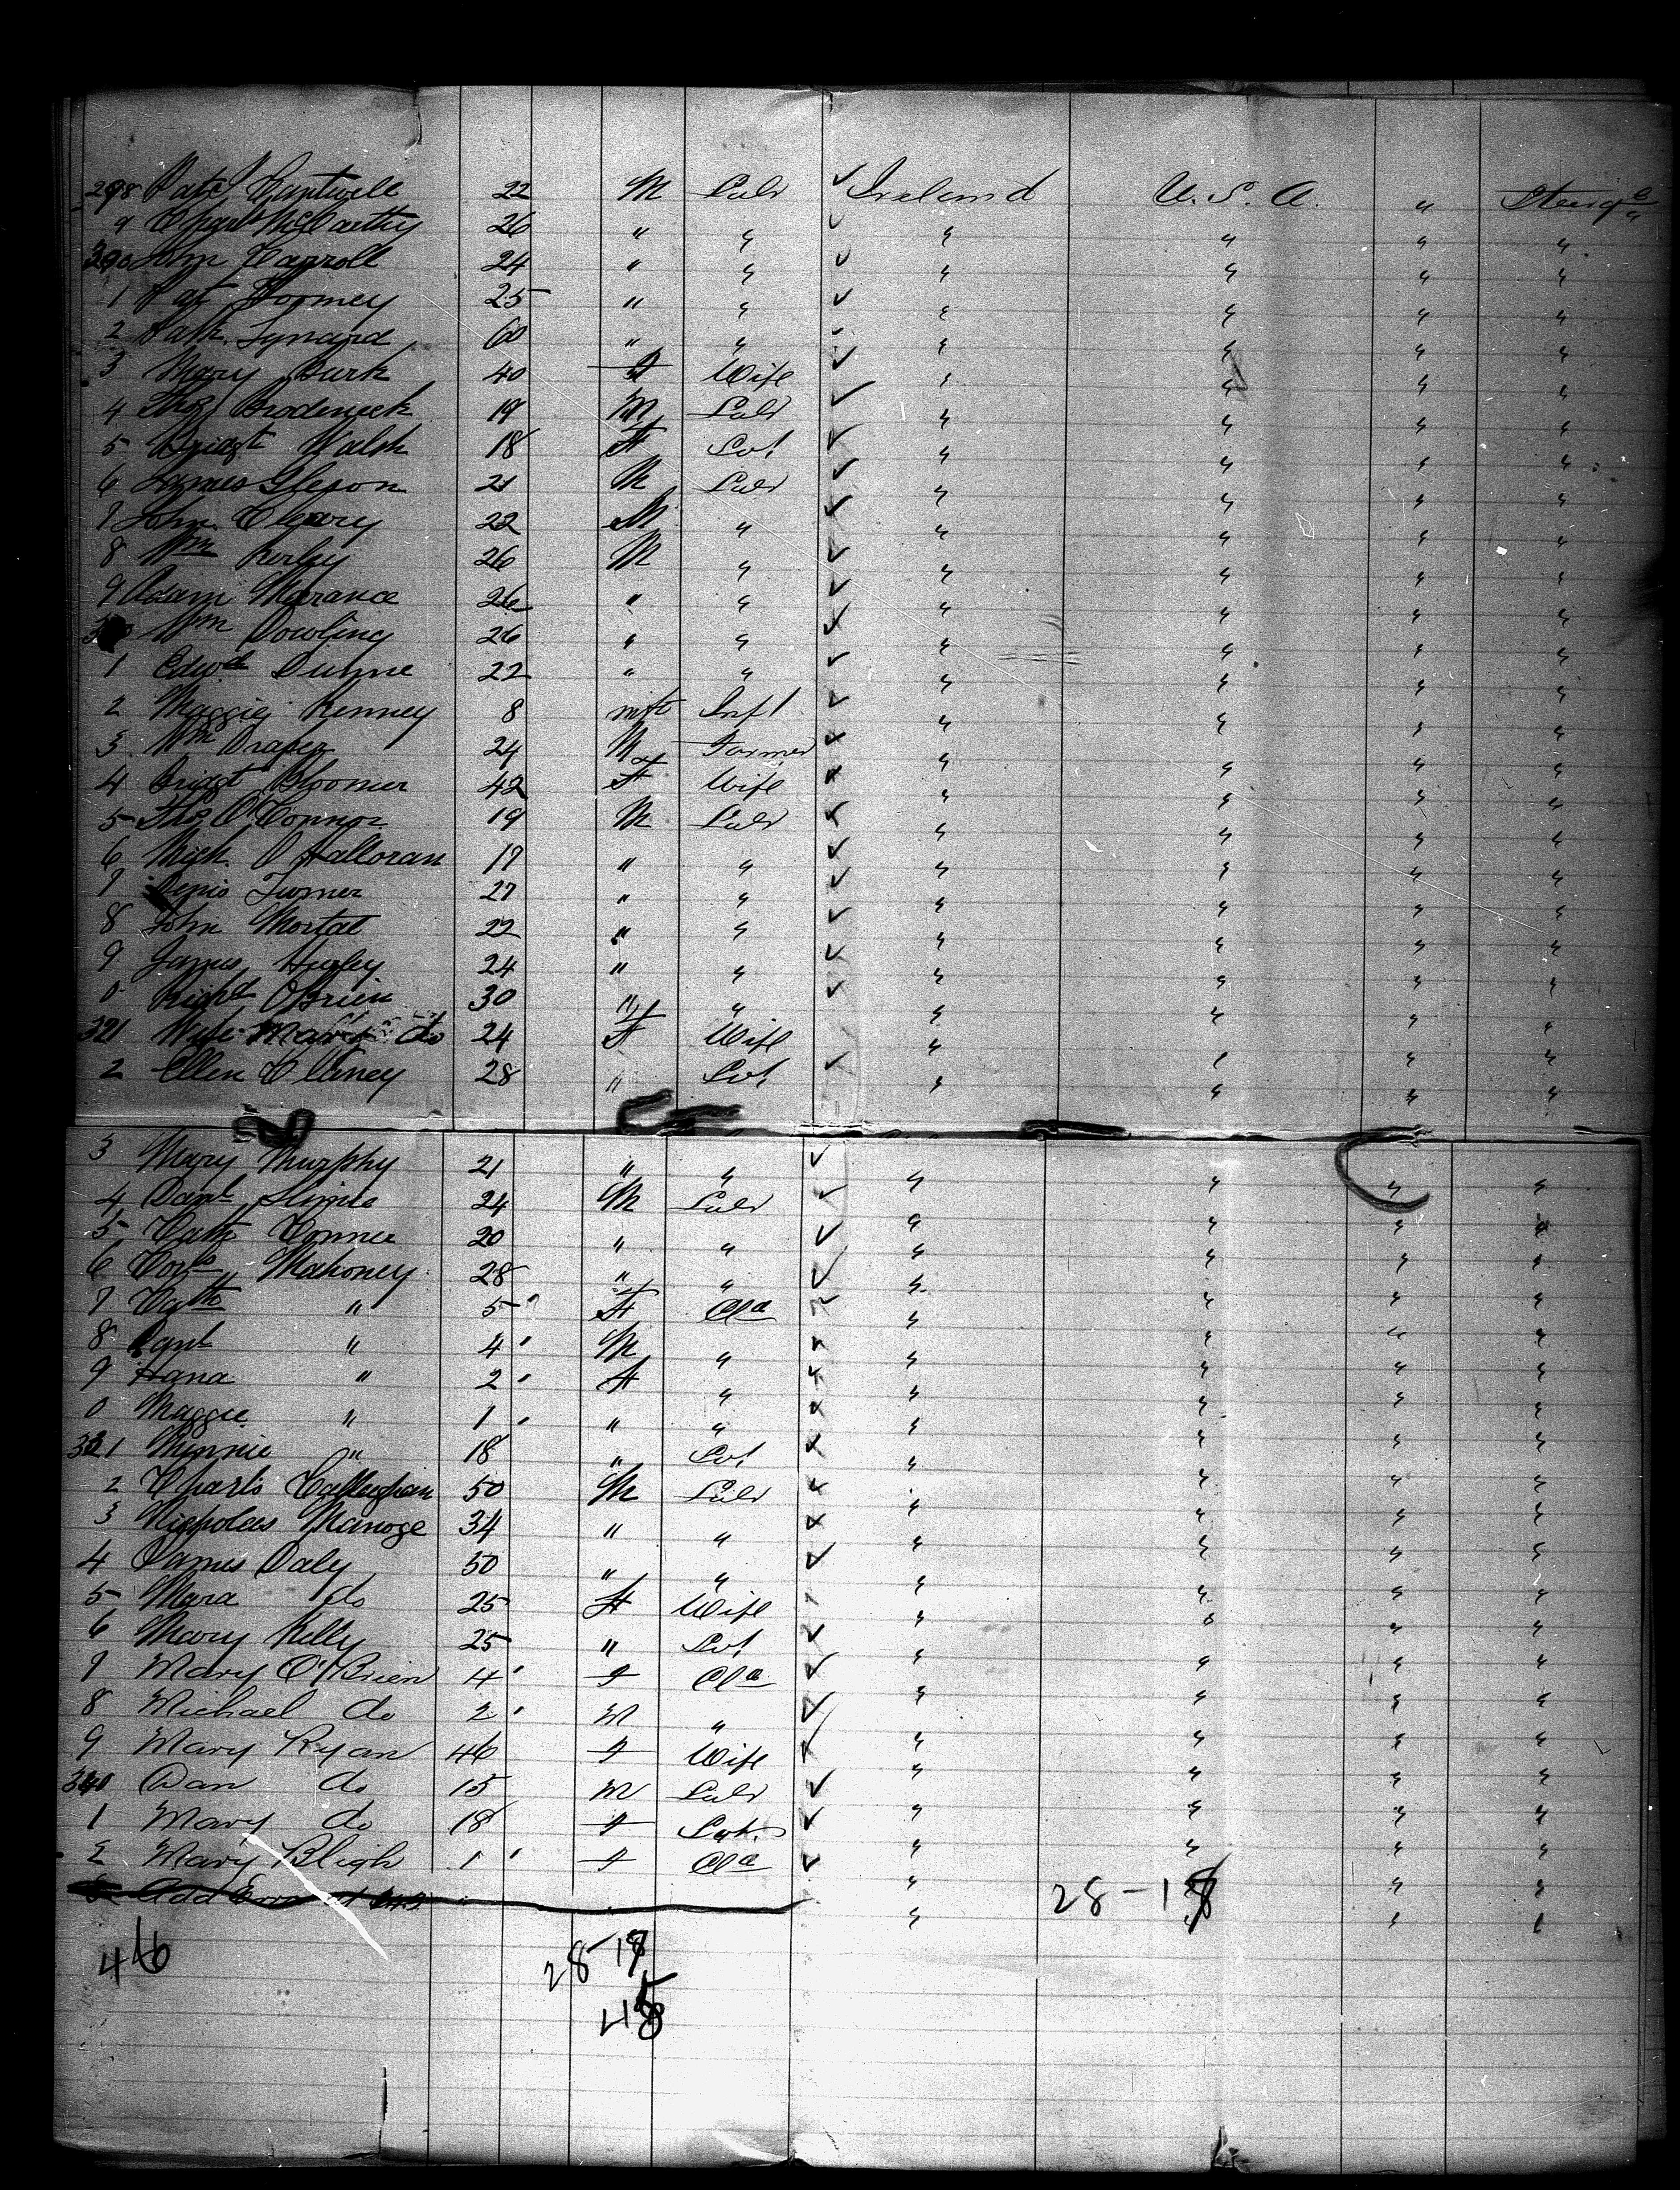 298 Patk Cantwell 22 M Labr ✓ Ireland U.S.A. " Steerge
9 Charls McCarthy 26 " " ✓ " " " "
300 Jim Carroll 24 " " ✓ " " " "
1 Pat Toomey 25 " " ✓ " " " "
2 Patk. Lynard 60 " " " " " "
3 Mary Burk 40 F Wife ✓ " " " "
4 Thos Broderick 19 M Labr ✓ " " " "
5 Bridgt Walsh 18 F Svt ✓ " " " "
6 James Gleson 21 M Labr ✓ " " " "
7 John Cleary 22 M " ✓ " " " "
8 Wm Kerley 26 M " ✓ " " " "
9 Adam Marance 26 " " ✓ " " " "
Wm Dowling 26 " " ✓ " " " "
1 Edwd Dunne 22 " " ✓ " " " "
2 Maggie Kenney 8 Inft ✓ " " " "
3 Wm Draper 24 M Farmer x " " " "
4 Bridgt Bloomer 42 F Wife x " " " "
5 Thos O'Connor 19 M Labr ✓ " " " "
6 Mich. O'Halloran 17 " " ✓ " " " "
7 Denis Turner 27 " " ✓ " " " "
8 John Mortal 22 " " ✓ " " " "
9 James Higley 24 " " ✓ " " " "
0 Richd O'Brien 30 " " ✓ " " " "
321 Wife Mary do 24 F Wife " " " "
2 Ellen Clancy 28 " Svt ✓ " " " "
3 Mary Murphy 21 " " ✓ " " " "
4 Danl 24 M Labr ✓ " " " "
5 Cath Connee 20 " " ✓ " " " "
6 Cors Mahoney 28 " " ✓ " " " "
7 Cath " 5 F Cld x " " " "
8 Danl " 4 M " x " " " "
9 Hana " 2 F " x " " " "
0 Maggie " 1 " " x " " " "
331 Minnie " 18 " Svt x " " " "
2 Charls Callaghan 50 M Labr x " " " "
3 Nicholas Manoge 34 " " x " " " "
4 James Daly 50 " " ✓ " " " "
5 Mara do 25 F Wife " " " "
6 Mary Kelly 25 " Svt ✓ " " " "
7 Mary O'Brien 4 F Cld ✓ " " " "
8 Michael do 2 M " ✓ " " " "
9 Mary Ryan 46 F Wife ✓ " " " "
340 Dan do 15 M Labr ✓ " " " "
1 Mary do 18 F Svt ✓ " " " "
2 Mary Bligh 1 F Cld ✓ " " " "
28-18
46
28-18